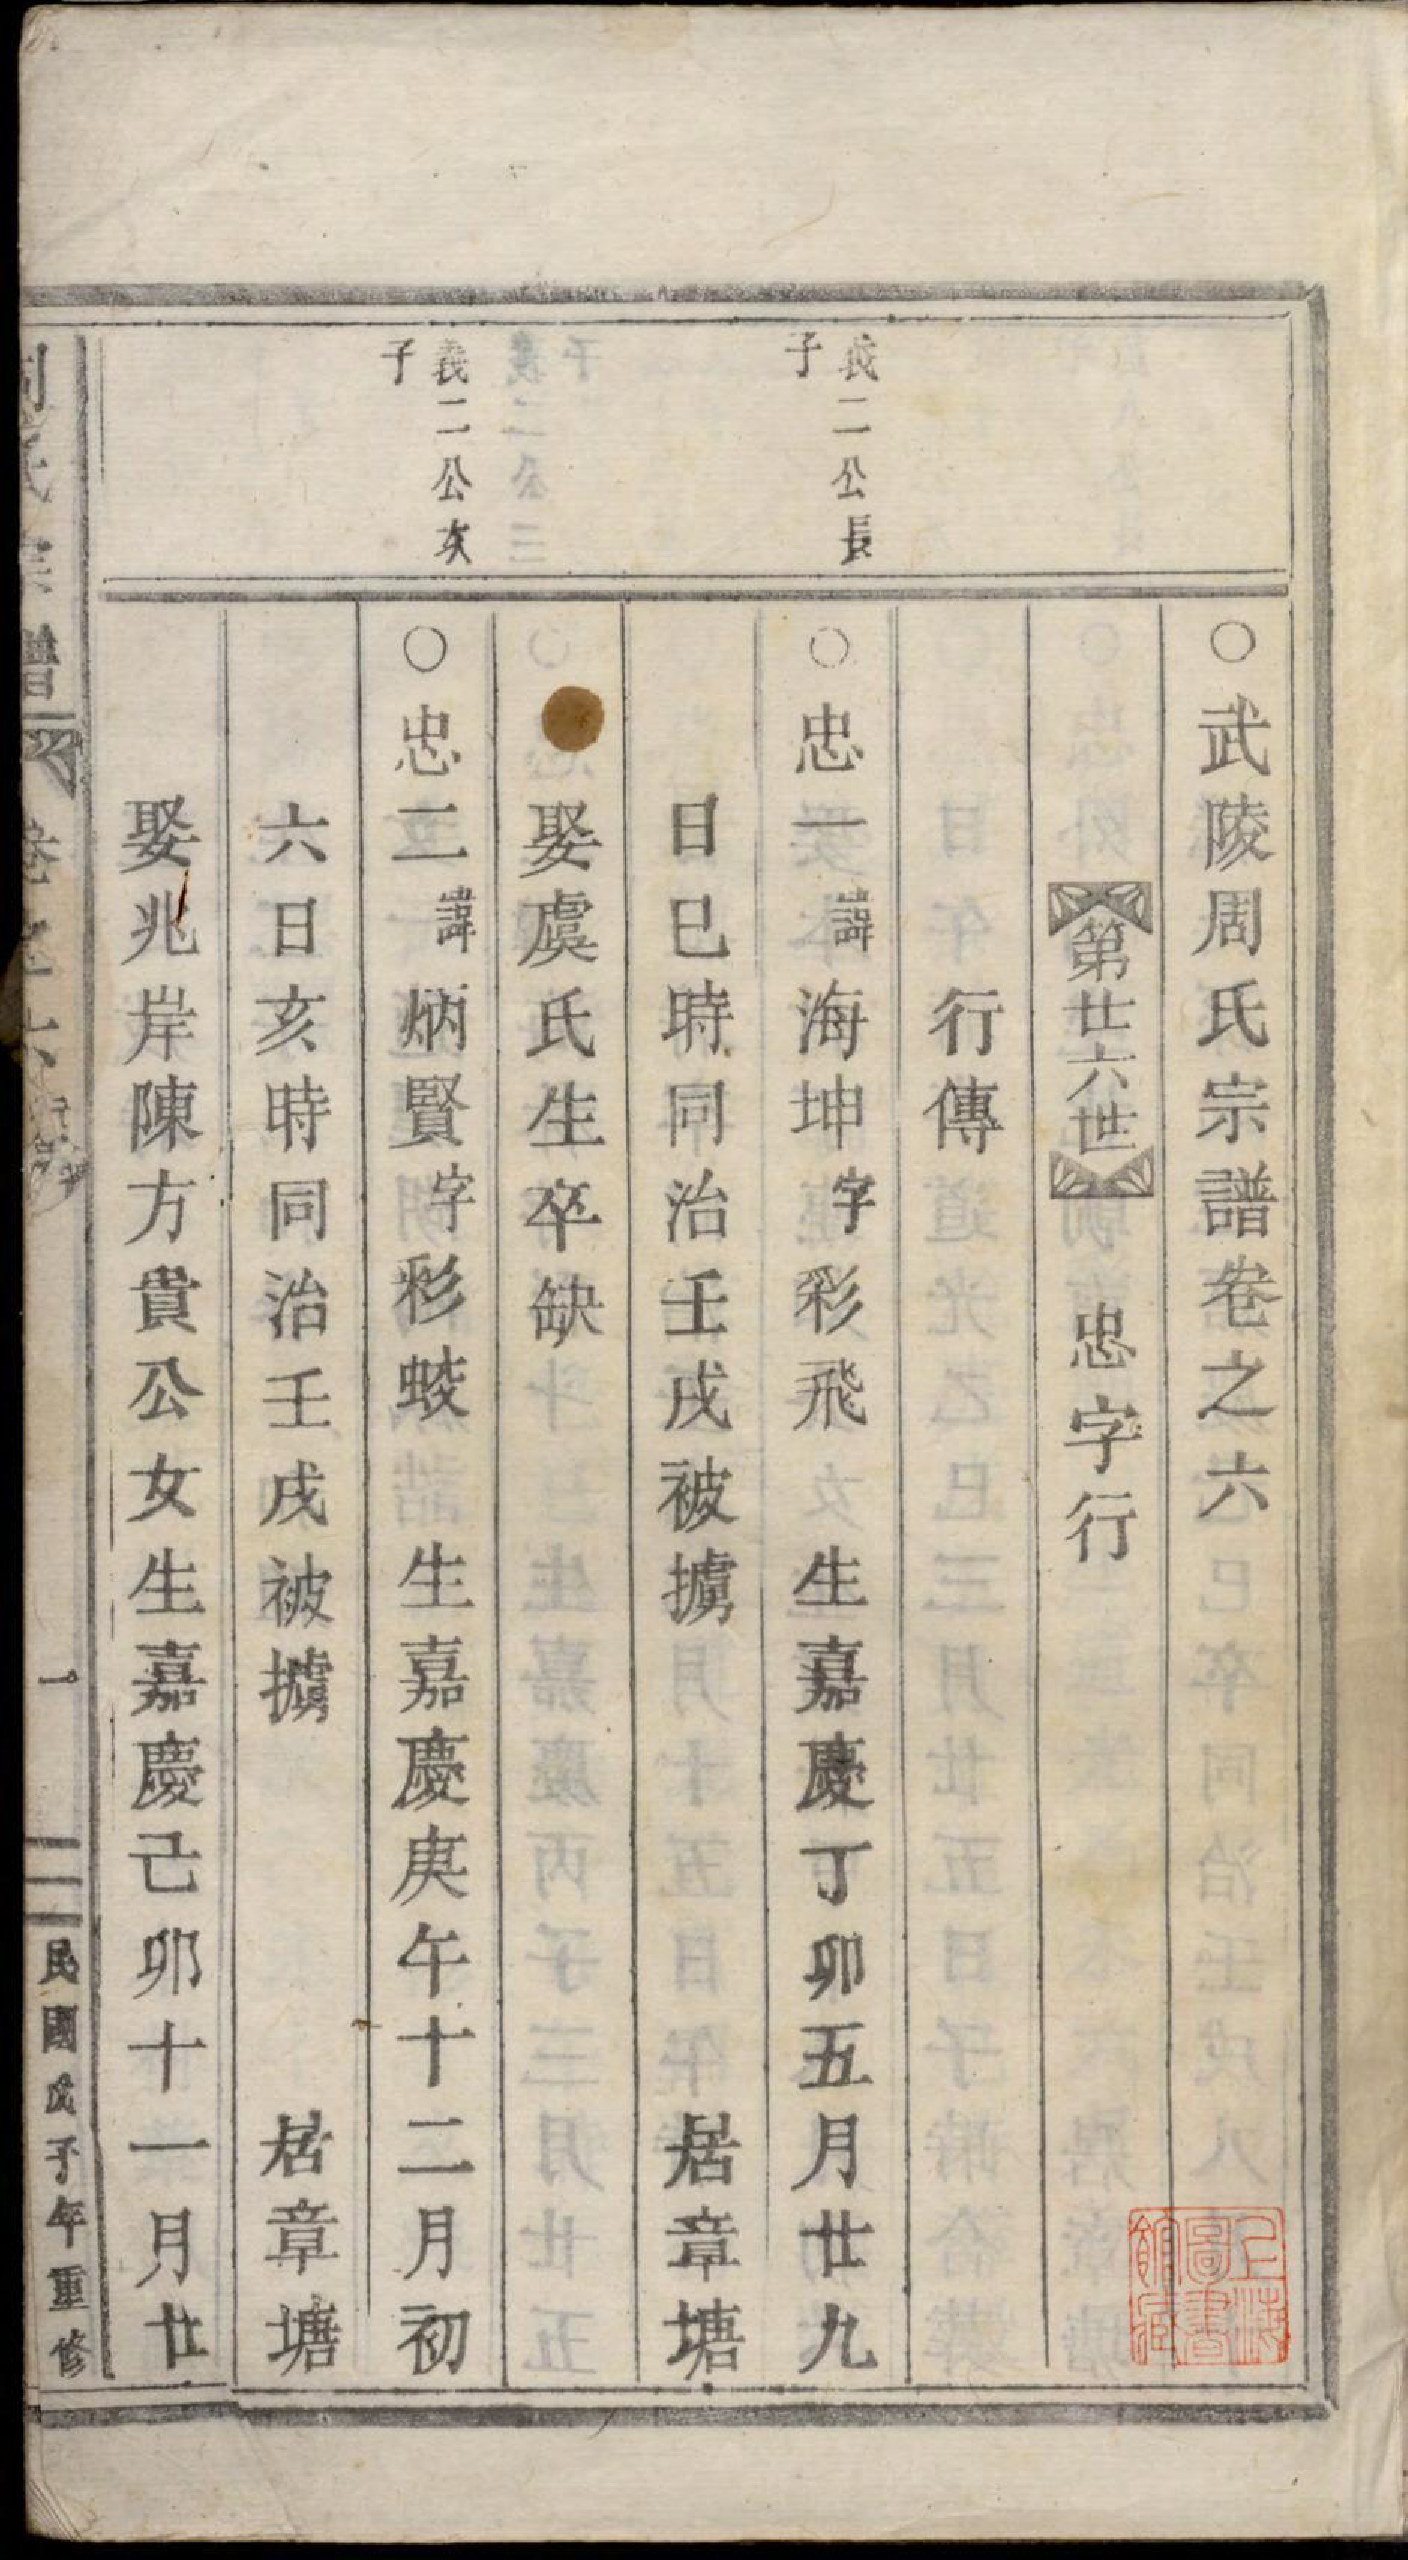 ○武陵周氏宗譜卷之六
第廿六世 忠字行
行傳
義二公長
子
○忠一諱海坤字彩飛 生嘉慶丁卯五月廿九
日巳時同治壬戌被擄 居章塘
娶虞氏生卒缺
義二公次
子
○忠二諱炳賢字彩蛟 生嘉慶庚午十二月初
六日亥時同治壬戌被擄 居章塘
娶兆岸陳方貴公女生嘉慶己卯十一月廿
周氏宗譜 卷之六 一 民國戊子年重修
上海
圖書
館藏